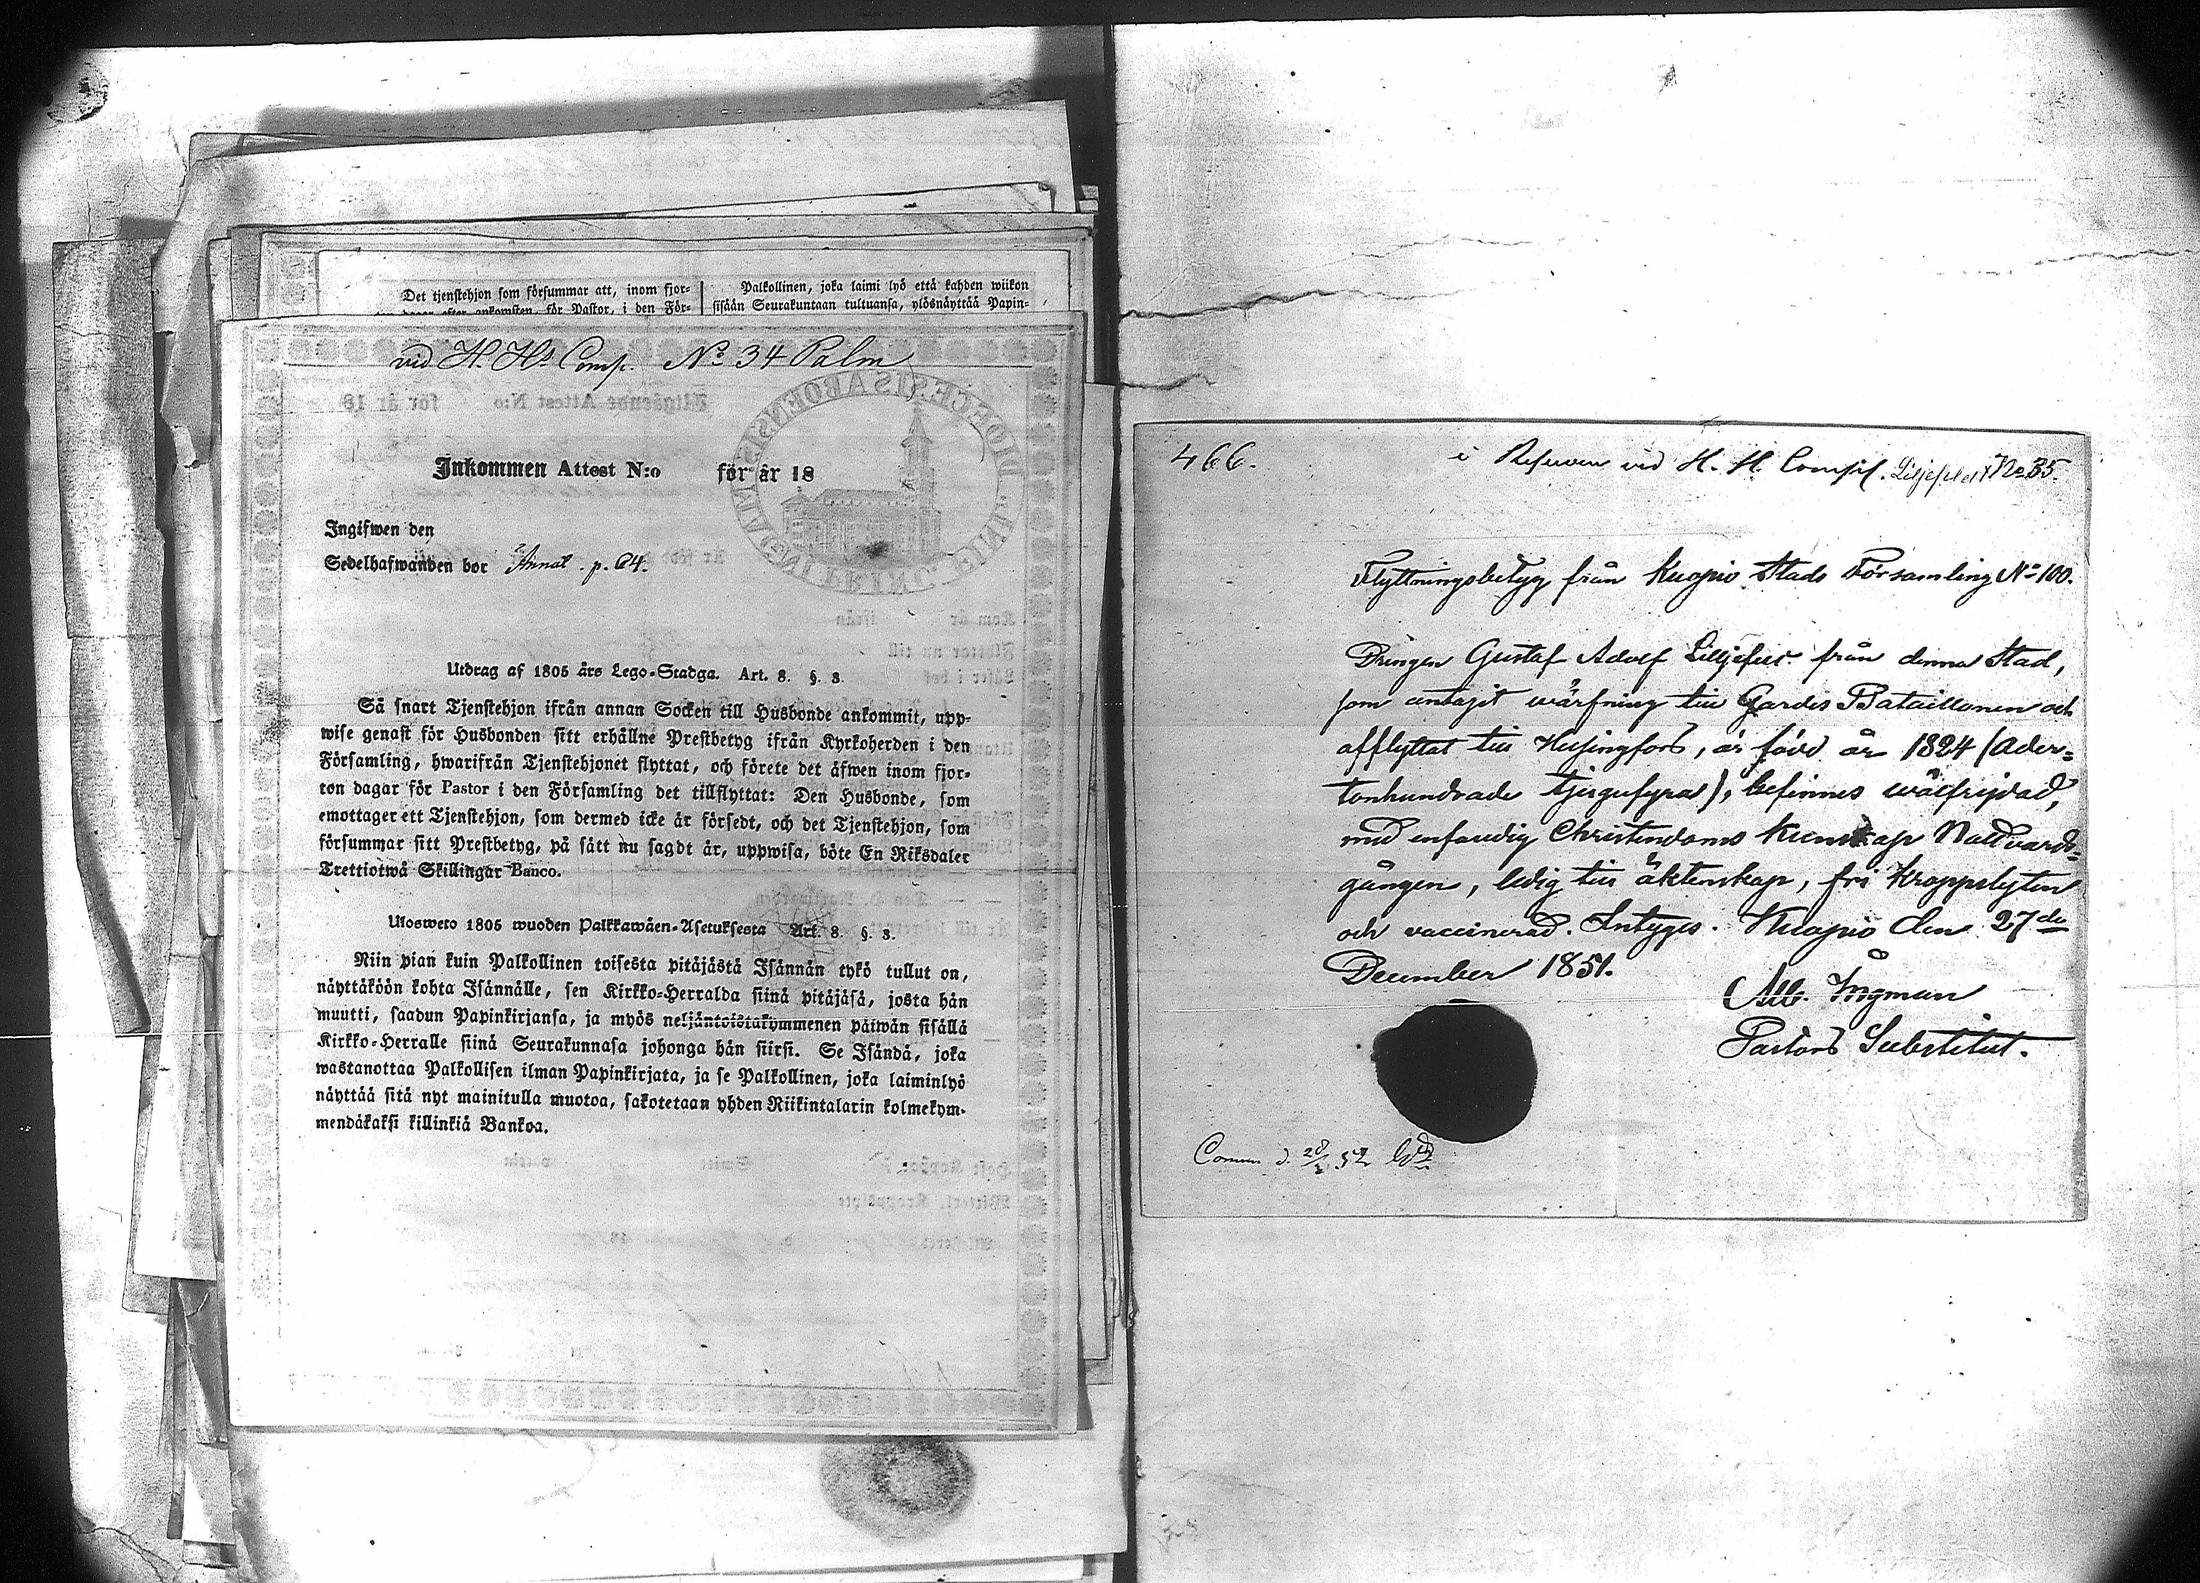 Det tjenstehjon som försummar att, inom fjor-
ton dagar efter ankomsten, för Pastor, i den För-
Palkollinen, joka laimi lyö että kahden wiikon
sisään Seurakuntaan tultuansa, ylösnäyttää Papin-
vid H. Hs Comp. No 34 Palm
Inkommen Attest N:o för år 18
Ingifwen den
Sedelhafwanden bor Annat. p. 64.
Utdrag af 1805 års Lego-Stadga. Art. 8. §. 3.
Så snart Tjenstehjon ifrån annan Socken till Husbonde ankommit, upp-
wise genast för Husbonden sitt erhållne Prestbetyg ifrån Kyrkoherden i den
Församling, hwarifrån Tjenstehjonet flyttat, och förete det äfwen inom fjor-
ton dagar för Pastor i den Församling det tillflyttat: Den Husbonde, som
emottager ett Tjenstehjon, som dermed icke är försedt, och det Tjenstehjon, som
försummar sitt Prestbetyg, på sätt nu sagdt är, uppwisa, böte En Riksdaler
Trettiotwå Skillingar Banco.
Ulosweto 1805 wuoden Palkkawäen-Asetuksesta Art. 8. §. 3.
Niin pian kuin Palkollinen toisesta pitäjästä Isännän tykö tullut on,
näyttäköön kohta Isännälle, sen Kirkko-Herralda siinä pitäjäsä, josta hän
muutti, saadun Papinkirjansa, ja myös neljäntoistakymmenen päiwän sisällä
Kirkko-Herralle siinä Seurakunnasa johonga hän siirsi. Se Isändä, joka
wastanottaa Palkollisen ilman Papinkirjata, ja se Palkollinen, joka laiminlyö
näyttää sitä nyt mainitulla muotoa, sakotetaan yhden Riikintalarin kolmekym-
mendäkaksi killinkiä Bankoa.
466.
i Reserven vid H. H. Compl. No 35.
Flyttningsbetyg från Kuopio Stads Församling No 100.
Drängen Gustaf Adolf från denna Stad,
som antagit wärfning till Gardes Bataillonen och
afflyttat till Helsingfors, är född år 1824 (Ader-
tonhundrade tjugufyra), befinnes wälfrejdad,
med enfaldig Christendoms Kunskap Nattvards-
gången, ledig till äktenskap, fri Kroppslyten
och vaccinerad. Intygas. Kuopio den 27de
December 1851.
Alb. Ingman
Pastors Substitut.
Comm. d. 28/2 52